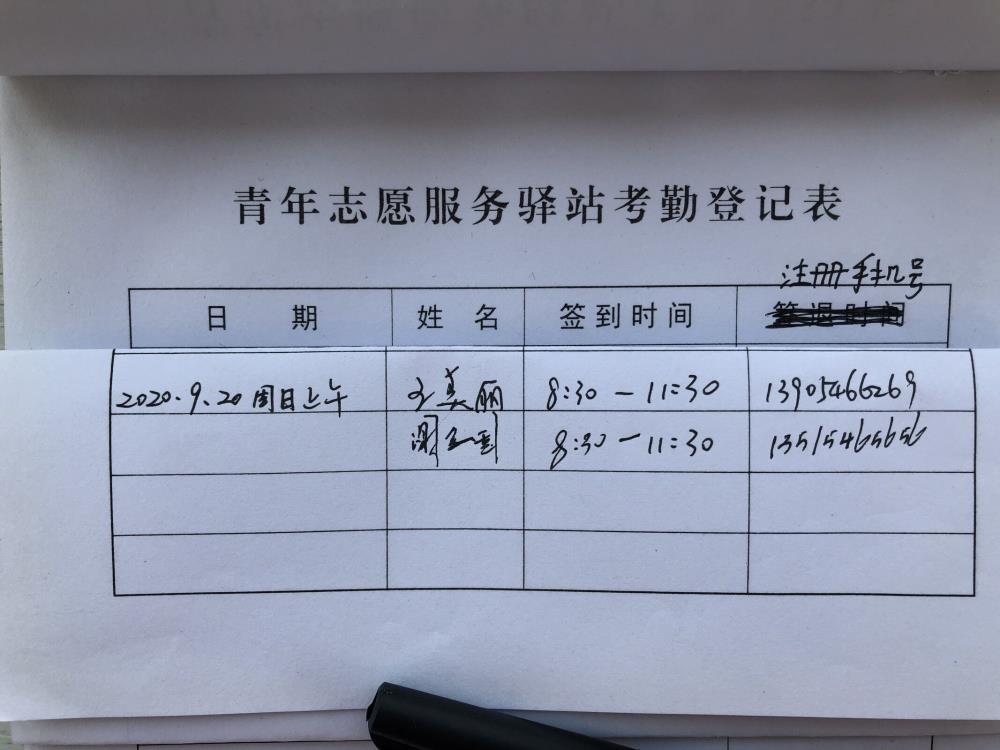 青年志愿服务驿站考勤登记表
注册手机号
日期 姓名 签到时间 签退时间
2020.9.20周日上午 王美丽 8:30-11:30 13905466269
谢玉雪 8:30-11:30 13515465656